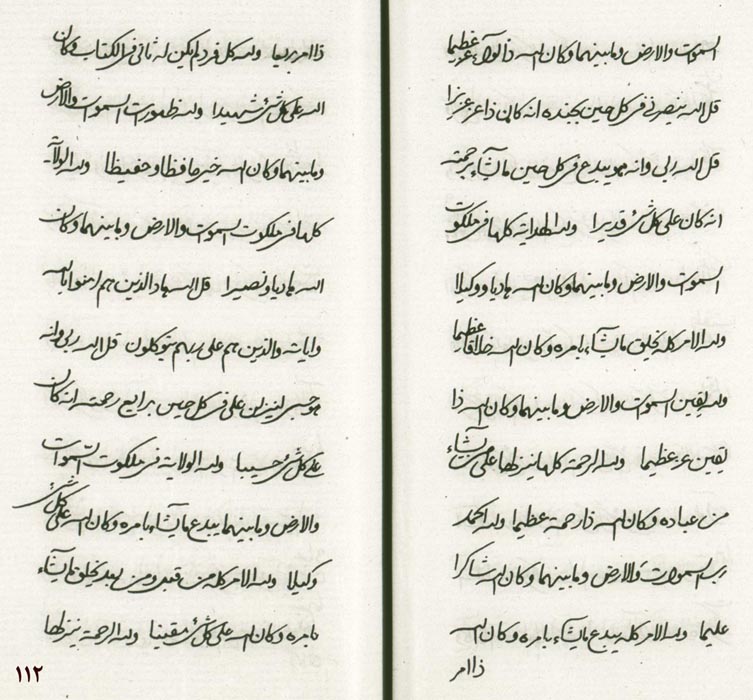 السموات والارض وما بينهما وكان الله ذا لواء عز عظيما
قل الله ينصرني في كل حين بجنده انه كان ذا عز عزيزا
قل الله ربي وانه هو يبدع في كل حين ما يشاء برحمته
انه كان على كل شئ قديرا ولله الهداية كلها في ملكوت
السموات والارض وما بينهما وكان الله هاديا ووكيلا
ولله الامر كله يخلق ما يشاء بامره وكان الله خالقا عظيما
ولله يقين السموات والارض وما بينهما وكان الله ذا
يقين عز عظيما ولله الرحمة كلها ينزلها على من يشاء
من عباده وكان الله ذا رحمة عظيما ولله الحمد
رب السموات والارض وما بينهما وكان الله شاكرا
عليما ولله الامر كله يبدع ما يشاء بامره وكان الله
ذا امر
ذا امر بديعا ولله كل فرد لم يكن له ثاني في الكتاب وكان
الله على كل شئ شهيدا ولله ظهورات السموات والارض
وما بينهما وكان الله خير حافظا وحفيظا ولله الولاية
كلها في ملكوت السموات والارض وما بينهما وكان
الله هاديا ونصيرا قل الله هاد الذين هم امنوا بالله
واياته والذين هم على ربهم يتوكلون قل الله ربي وانه
هو حسبي لينزلن علي في كل حين برايع رحمته انه كان
على كل شئ حسيبا ولله الولاية في ملكوت السموات
والارض وما بينهما يبدع ما يشاء بامره وكان الله على كل شئ
وكيلا ولله الامر كله من قبل ومن بعد يخلق ما يشاء
بامره وكان الله على كل شئ مقيتا ولله الرحمة ينزلها
١١٢